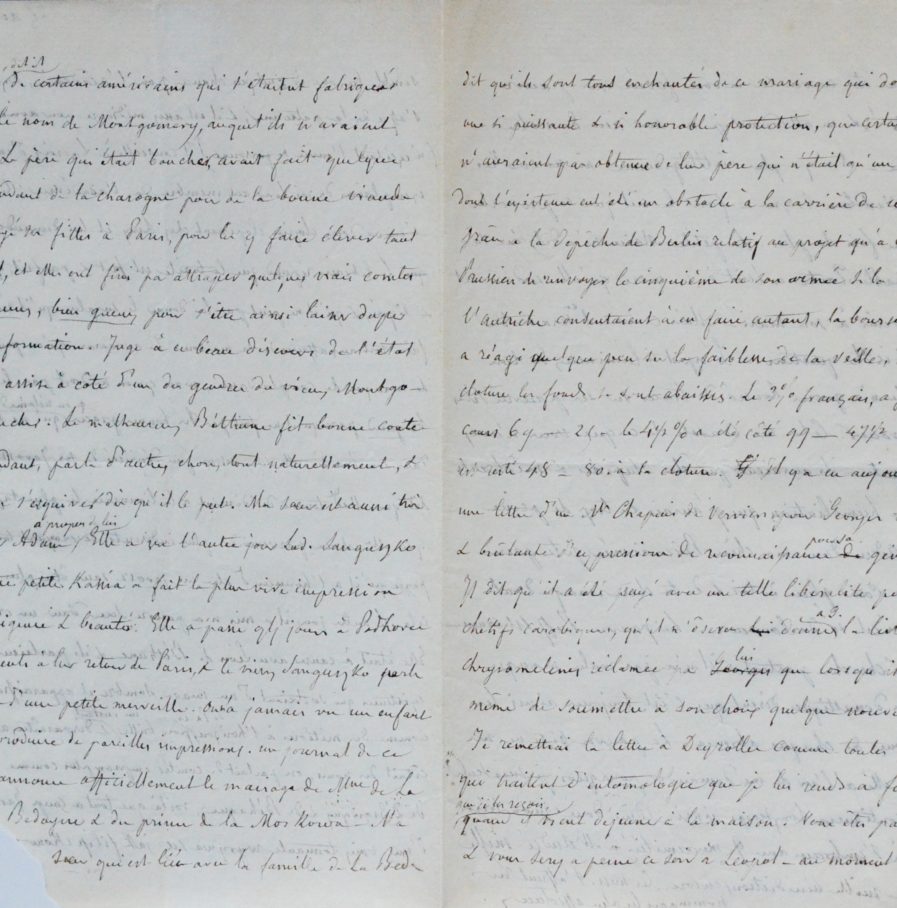 de certains américains qui s'étaient fabriqués
le nom de Montgomery, auquel ils n'avaient
Le père qui était boucher, avait fait quelque
de la charogne pour de la bonne viande
ses filles à Paris, pour les y faire élever tant
et elles ont fini par attraper quelques vrais comtes
bien gueux, pour s'être ainsi laissé duper
formation. Juge à ce beau discours de l'état
assise à côté d'un des gendres du vieux Montgo-
Le malheureux Béthune fit bonne conte
parla d'autre chose, tout naturellement, &
s'esquiver dès qu'il le put. Ma sœur est aussi très
à propos de lui
Adam, Elle a vu l'autre jour Lad. Sanguszko
petite Kasia a fait la plus vive impression
& beauté. Elle a passé qlq jours à Podhorce
à leur retour de Paris, & le vieux Sanguszko parle
d'une petite merveille. On a jamais vu un enfant
produire de pareilles impressions. un journal de ce
annonce officiellement le mariage de Mme de La
Bedoyère & du prince de la Moskowa – Ma
sœur qui est liée avec la famille de La Bed
dit qu'ils sont tous enchantés de ce mariage qui do
une si puissante & si honorable protection, que certai
n'auraient pas obtenue de leur père qui n'était qu'un
dont l'existence eut été un obstacle à la carrière de
la dépêche de Berlin relatif au projet qu'a
Prussien de renvoyer le cinquième de son armée si la
l'Autriche consentaient à en faire autant, la bourse
a réagi quelque peu sur la faiblesse de la veille,
cloture les fonds se sont abaissés. Le 3% français, a
cours 69 – 25 – le 4½ % a été côté 99 –
est resté 48 – 80. à la cloture. Il y a eu aujou
une lettre d'un Mr Chapuis de Verviers pour Georges
& brûlante d'expressions de reconnaissance pour sa
Il dit qu'il a été payé avec une telle libéralité
chétifs carabiques, qu'il a à G.
chrysomelines réclamée & à lui que lorsqu'
même de soumettre à son choix quelque nouve
Je remettrai la lettre à Deyrolles comme toutes
qui traitent d'entomologie que je lui rends à
que je les reçois.
quand il vient déjeuner à la maison. Vous êtes pa
& vous serez à peine ce soir à – au moment